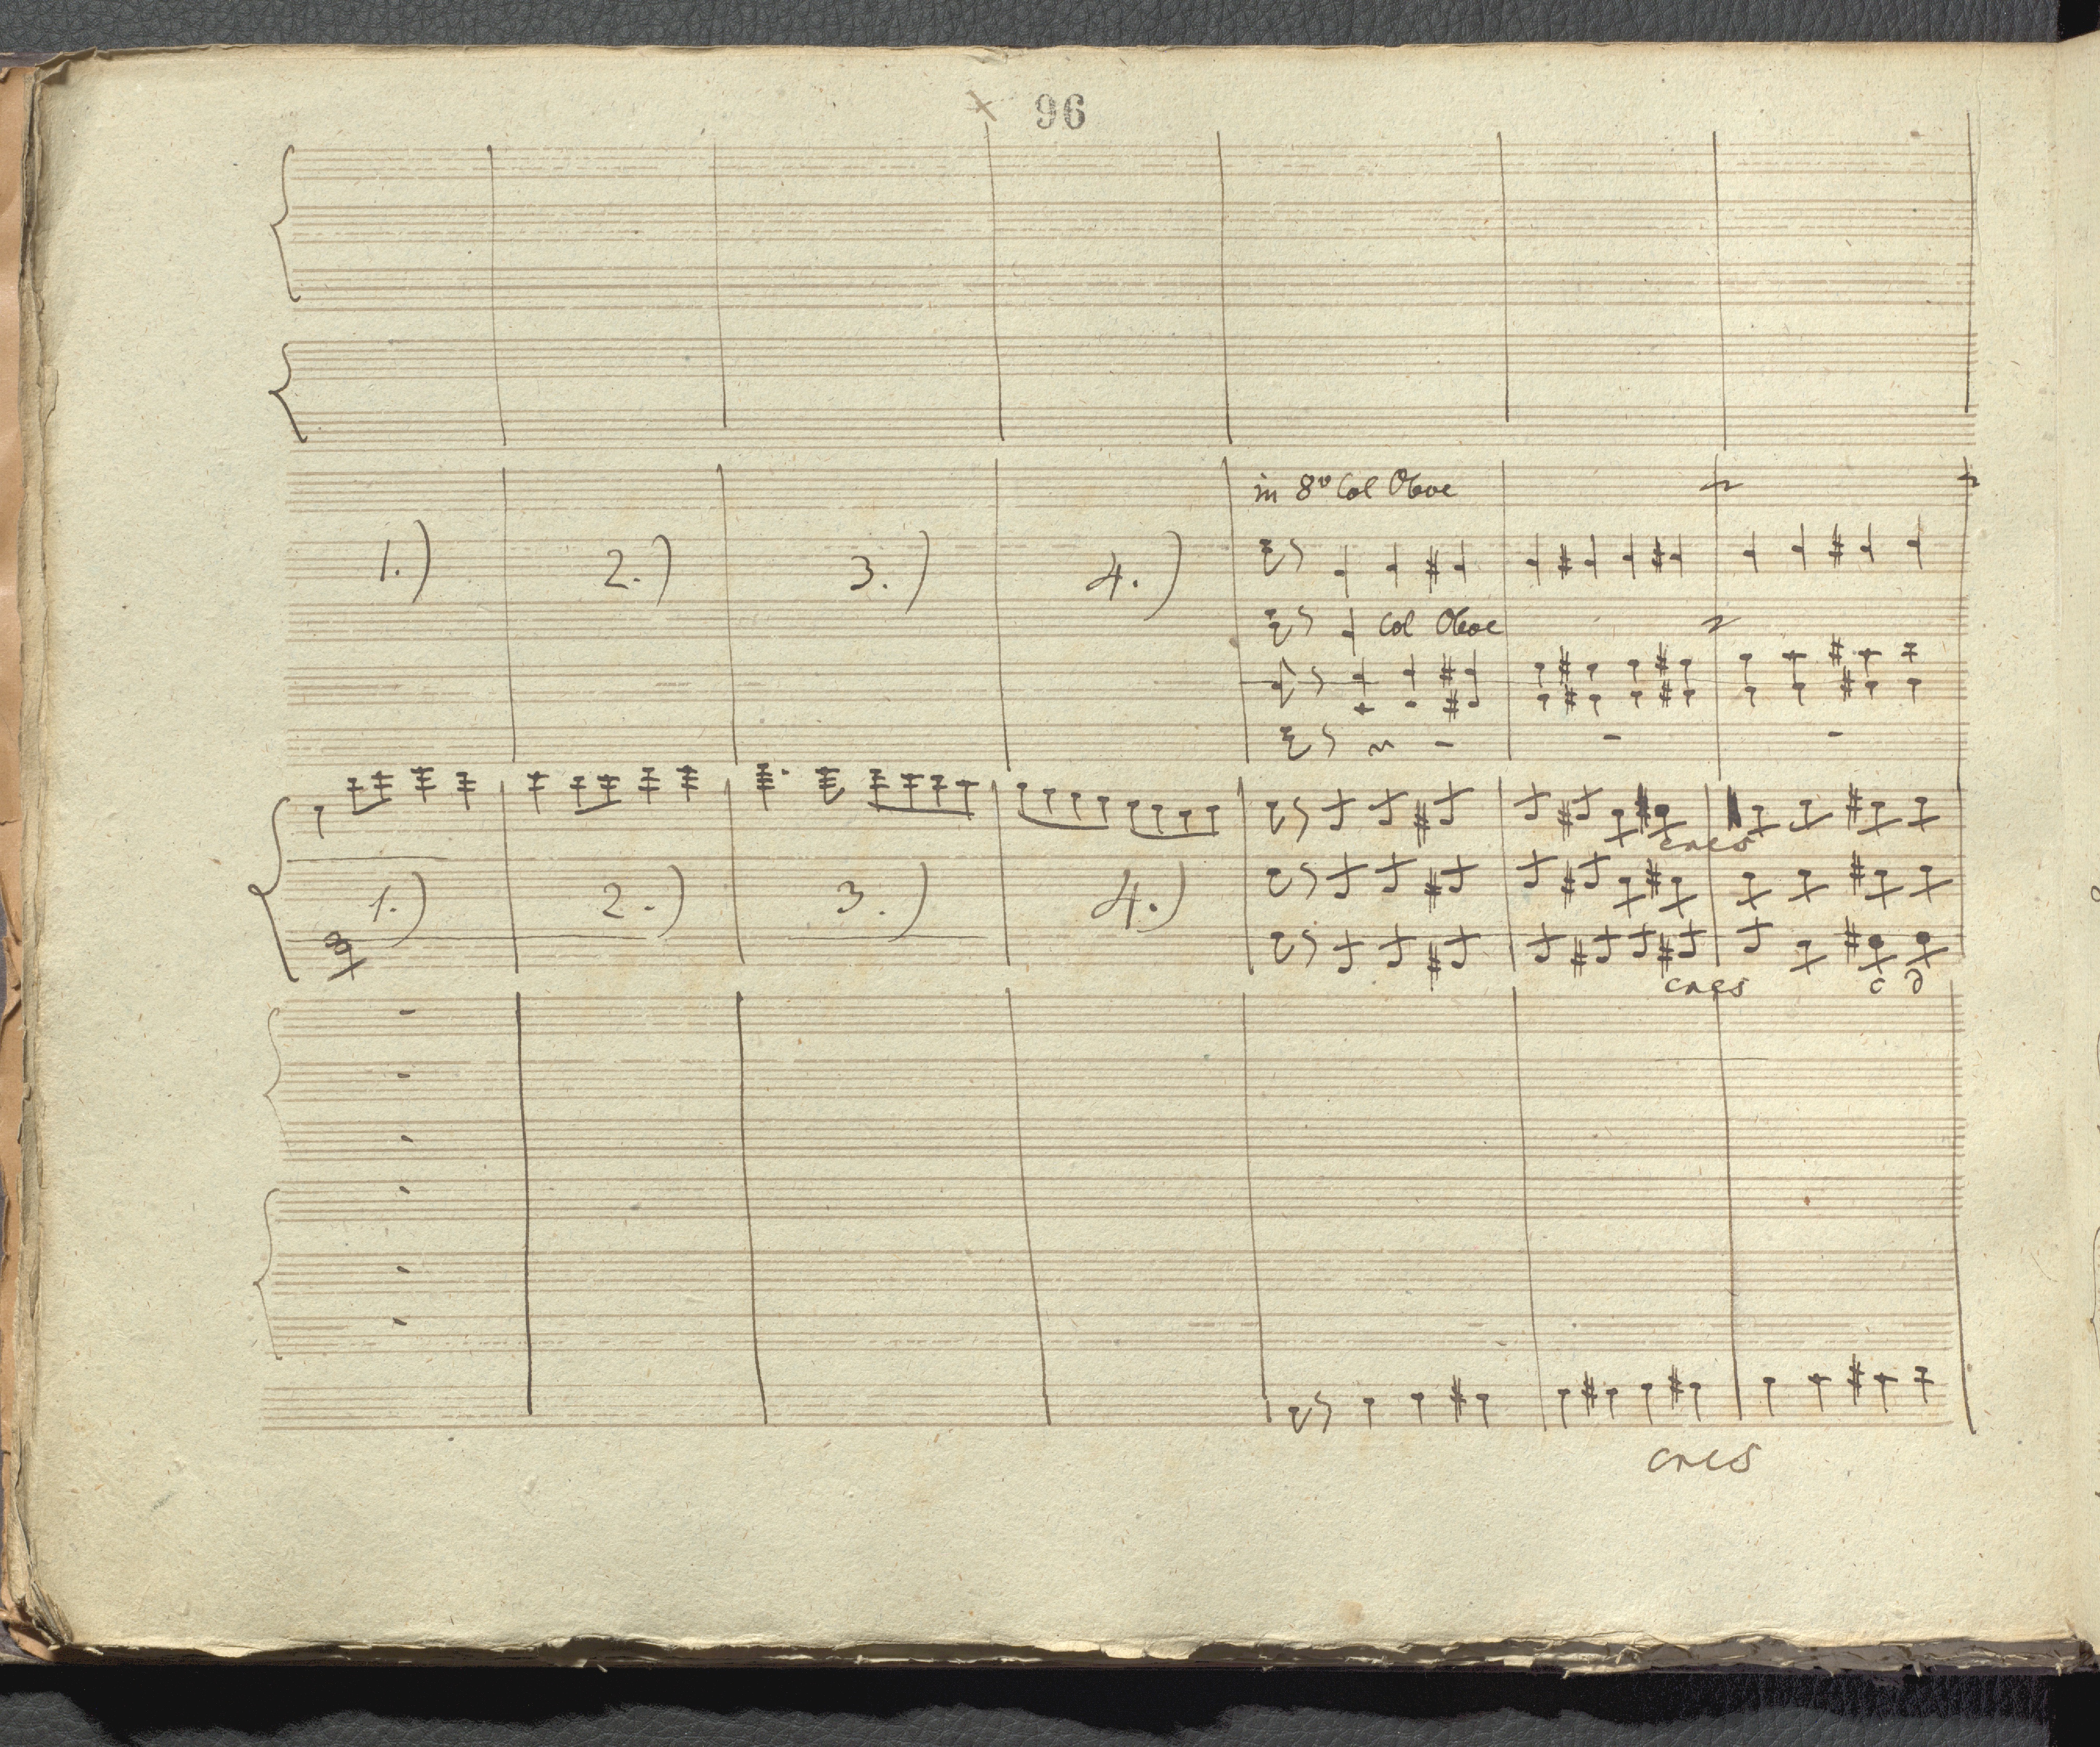 96
in 8v Col Oboe
1.) 2.) 3.) 4.)
Col Oboe
cres
1.) 2.) 3.) 4.)
cres c d
cres